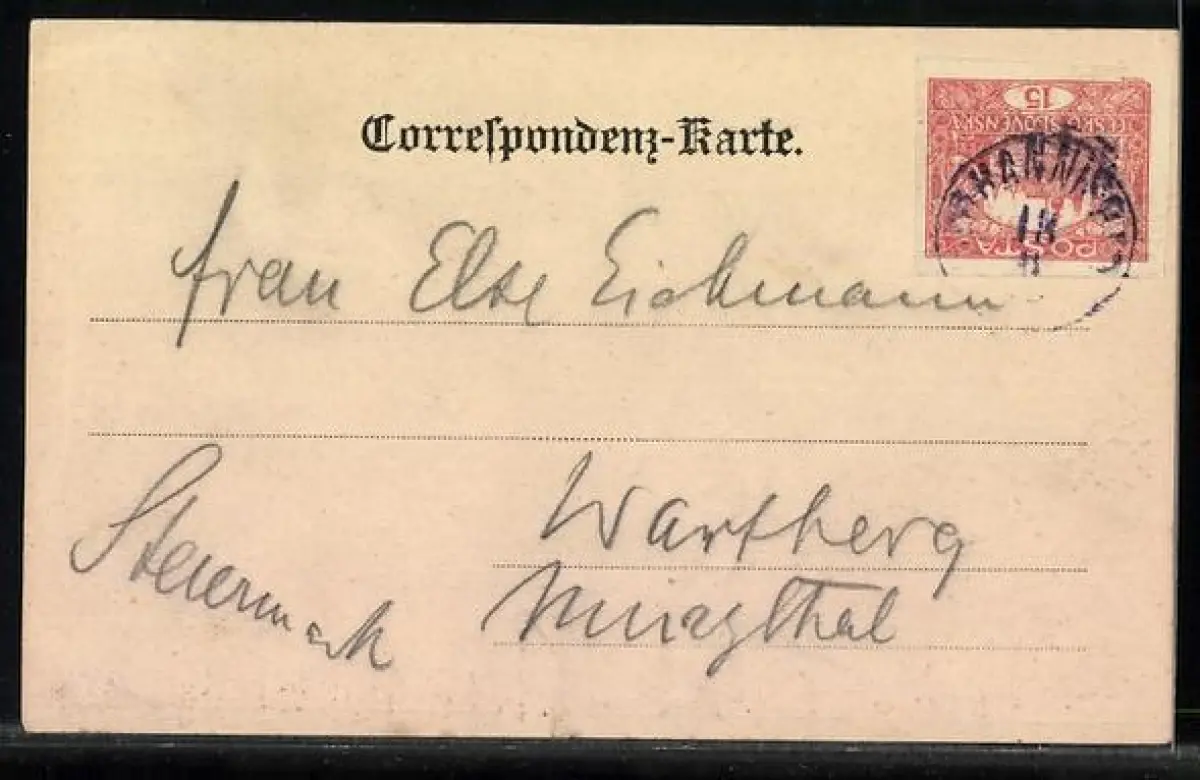 Correspondenz-Karte.
15
ČESKO-SLOVENSKÁ
POŠTA
Frau Else Eichmann
Wartberg
Mürzthal
Steiermark